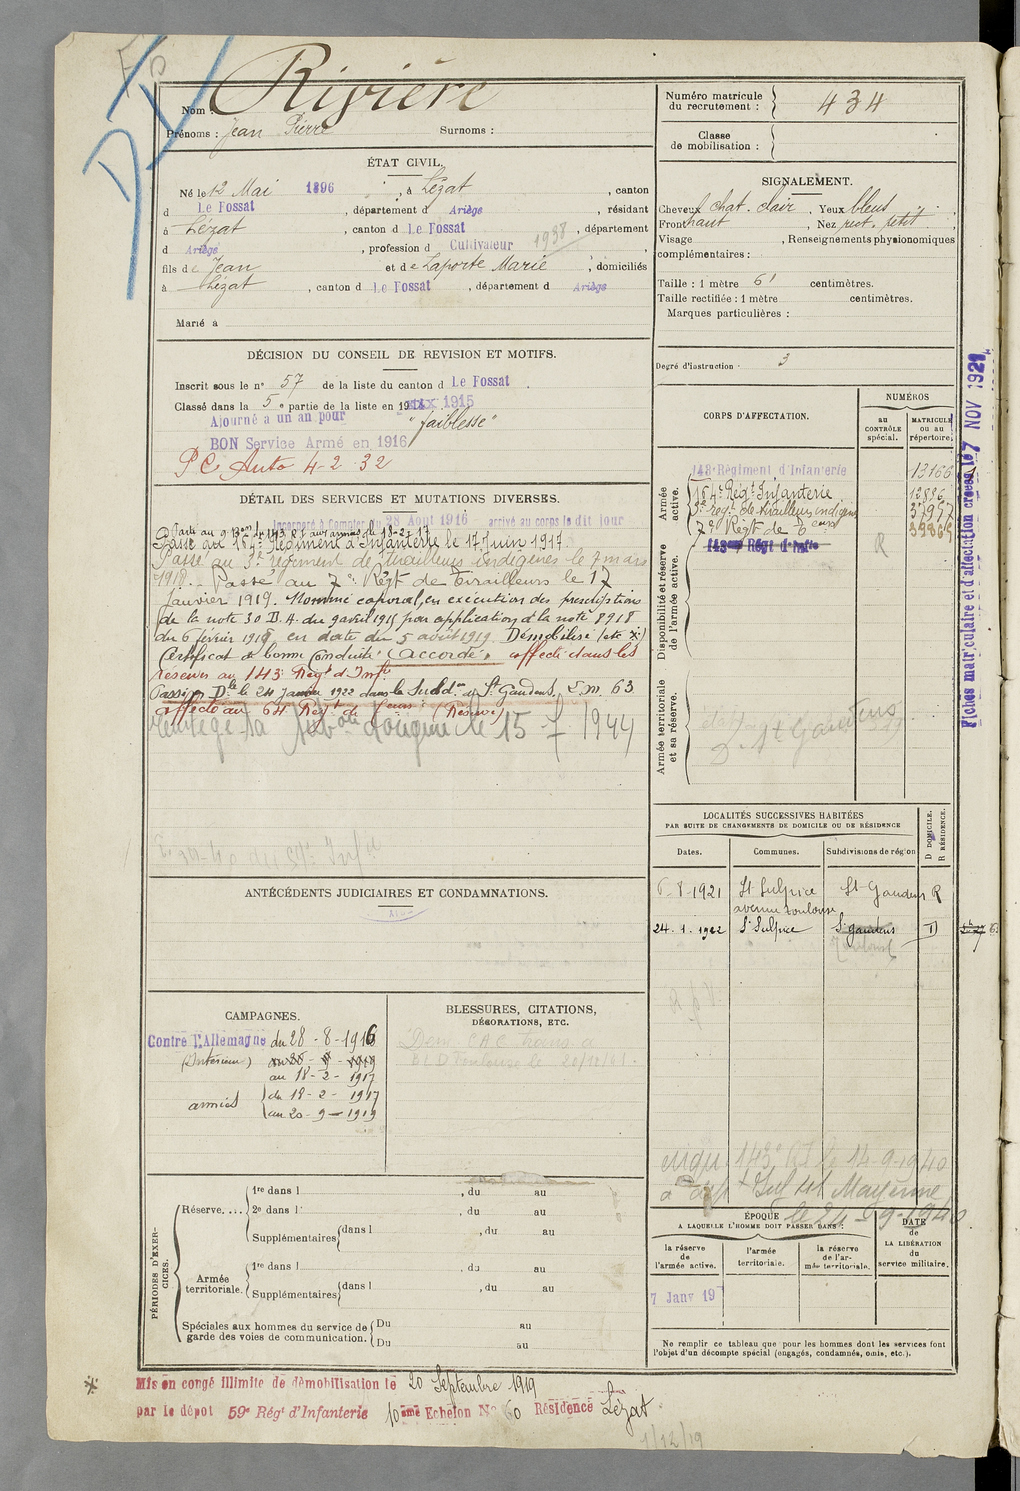 Nom : Rivière
Prénoms : Jean Pierre Surnoms :
Numéro matricule du recrutement : 434
Classe de mobilisation :
ÉTAT CIVIL.
Né le 12 Mai 1896, à Lézat, canton
d Le Fossat, département d Ariège, résidant
à Lézat, canton d Le Fossat, département
d Ariège, profession d Cultivateur 1938
fils de Jean et de Laporte Marie, domiciliés
à Lézat, canton d Le Fossat, département d Ariège
Marié à
SIGNALEMENT.
Cheveux chat. clair, Yeux bleus,
Front haut, Nez rect. petit,
Visage , Renseignements physionomiques
complémentaires :
Taille : 1 mètre 61 centimètres.
Taille rectifiée : 1 mètre centimètres.
Marques particulières :
Degré d'instruction : 3
DÉCISION DU CONSEIL DE REVISION ET MOTIFS.
Inscrit sous le n° 57 de la liste du canton d Le Fossat.
Classé dans la 5e partie de la liste en 1915
Ajourné a un an pour "faiblesse"
BON Service Armé en 1916
PC Auto 4-2-32
DÉTAIL DES SERVICES ET MUTATIONS DIVERSES.
Incorporé à Compter du 28 Aout 1916 arrivé au corps le dit jour
aux armées le 18-2-17
Passé au 184e Régiment d'Infanterie le 17 Juin 1917.
Passé au 3e régiment de tirailleurs indigènes le 7 mars
1918. Passé au 7e Régt de Tirailleurs le 17
Janvier 1919. Nommé caporal, en exécution des prescriptions
de la note 30 D.A. du 9 avril 1915 par application de la note 8918
du 6 février 1918 en date du 5 août 1919. Démobilisé (etc x)
Certificat de bonne Conduite "Accordé", affecté dans les
réserves au 143e Régt d'Inf.
Passé Dle le 24 Janvier 1922 dans la Subdon de St Gaudens, L.M. 63
affecté au 64 Régt de (Réserve)
d'origine le 15 - 7 - 1944
ANTÉCÉDENTS JUDICIAIRES ET CONDAMNATIONS.
CORPS D'AFFECTATION.
NUMÉROS
au CONTRÔLE spécial.
MATRICULE ou au répertoire.
Armée active.
143e Régiment d'Infanterie 13166
184e Régt Infanterie 12896
3e régt de tirailleurs indigènes
7e Régt de
143eme Régt d'Infie
R
Disponibilité et réserve de l'armée active.
Armée territoriale et sa réserve.
St Gaudens
Fiches matriculaire et d'affectation créées le 7 NOV 1921
LOCALITÉS SUCCESSIVES HABITÉES
PAR SUITE DE CHANGEMENTS DE DOMICILE OU DE RÉSIDENCE
D DOMICILE. R RÉSIDENCE.
Dates. Communes. Subdivisions de région
6-8-1921 St Sulpice St-Gaudens R
avenue Toulouse
24.1.1922 St Sulpice St gaudens D
Toulouse
CAMPAGNES.
Contre l'Allemagne du 28-8-1916
(Intérieur)
au 18-2-1917
armées du 18-2-1917
au 20-9-1919
BLESSURES, CITATIONS,
DÉCORATIONS, ETC.
Dem. CAC trans. a
BLD Toulouse le
143e RI le 14-9-1940
Mayenne
le 24-9-1940
PÉRIODES D'EXERCICES.
Réserve....
1re dans l , du au
2e dans l , du au
Supplémentaires dans l , du au
Armée territoriale.
1re dans l , du au
Supplémentaires dans l , du au
Spéciales aux hommes du service de garde des voies de communication.
Du au
Du au
ÉPOQUE
A LAQUELLE L'HOMME DOIT PASSER DANS :
la réserve de l'armée active.
l'armée territoriale.
la réserve de l'armée territoriale.
DATE de LA LIBÉRATION du service militaire.
7 Janv 19
Ne remplir ce tableau que pour les hommes dont les services font
l'objet d'un décompte spécial (engagés, condamnés, omis, etc.).
Mis en congé illimité de démobilisation le 20 Septembre 1919
par le dépôt 59e Régt d'Infanterie 10eme Echelon No 60 Résidence Lézat
1/12/19